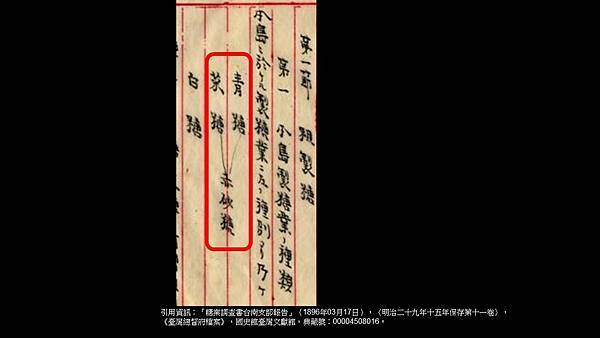 第一節 粗製糖
第一 本島製糖業ノ種類
本島ニ於ケル製糖業ニ左ノ種別アリ乃チ
青糖
菜糖
赤砂糖
白糖
引用資訊：「糖業調查書台南支部報告」（1896年03月17日），〈明治二十九年十五年保存第十一卷〉，
《臺灣總督府檔案》，國史館臺灣文獻館，典藏號：00004508016。